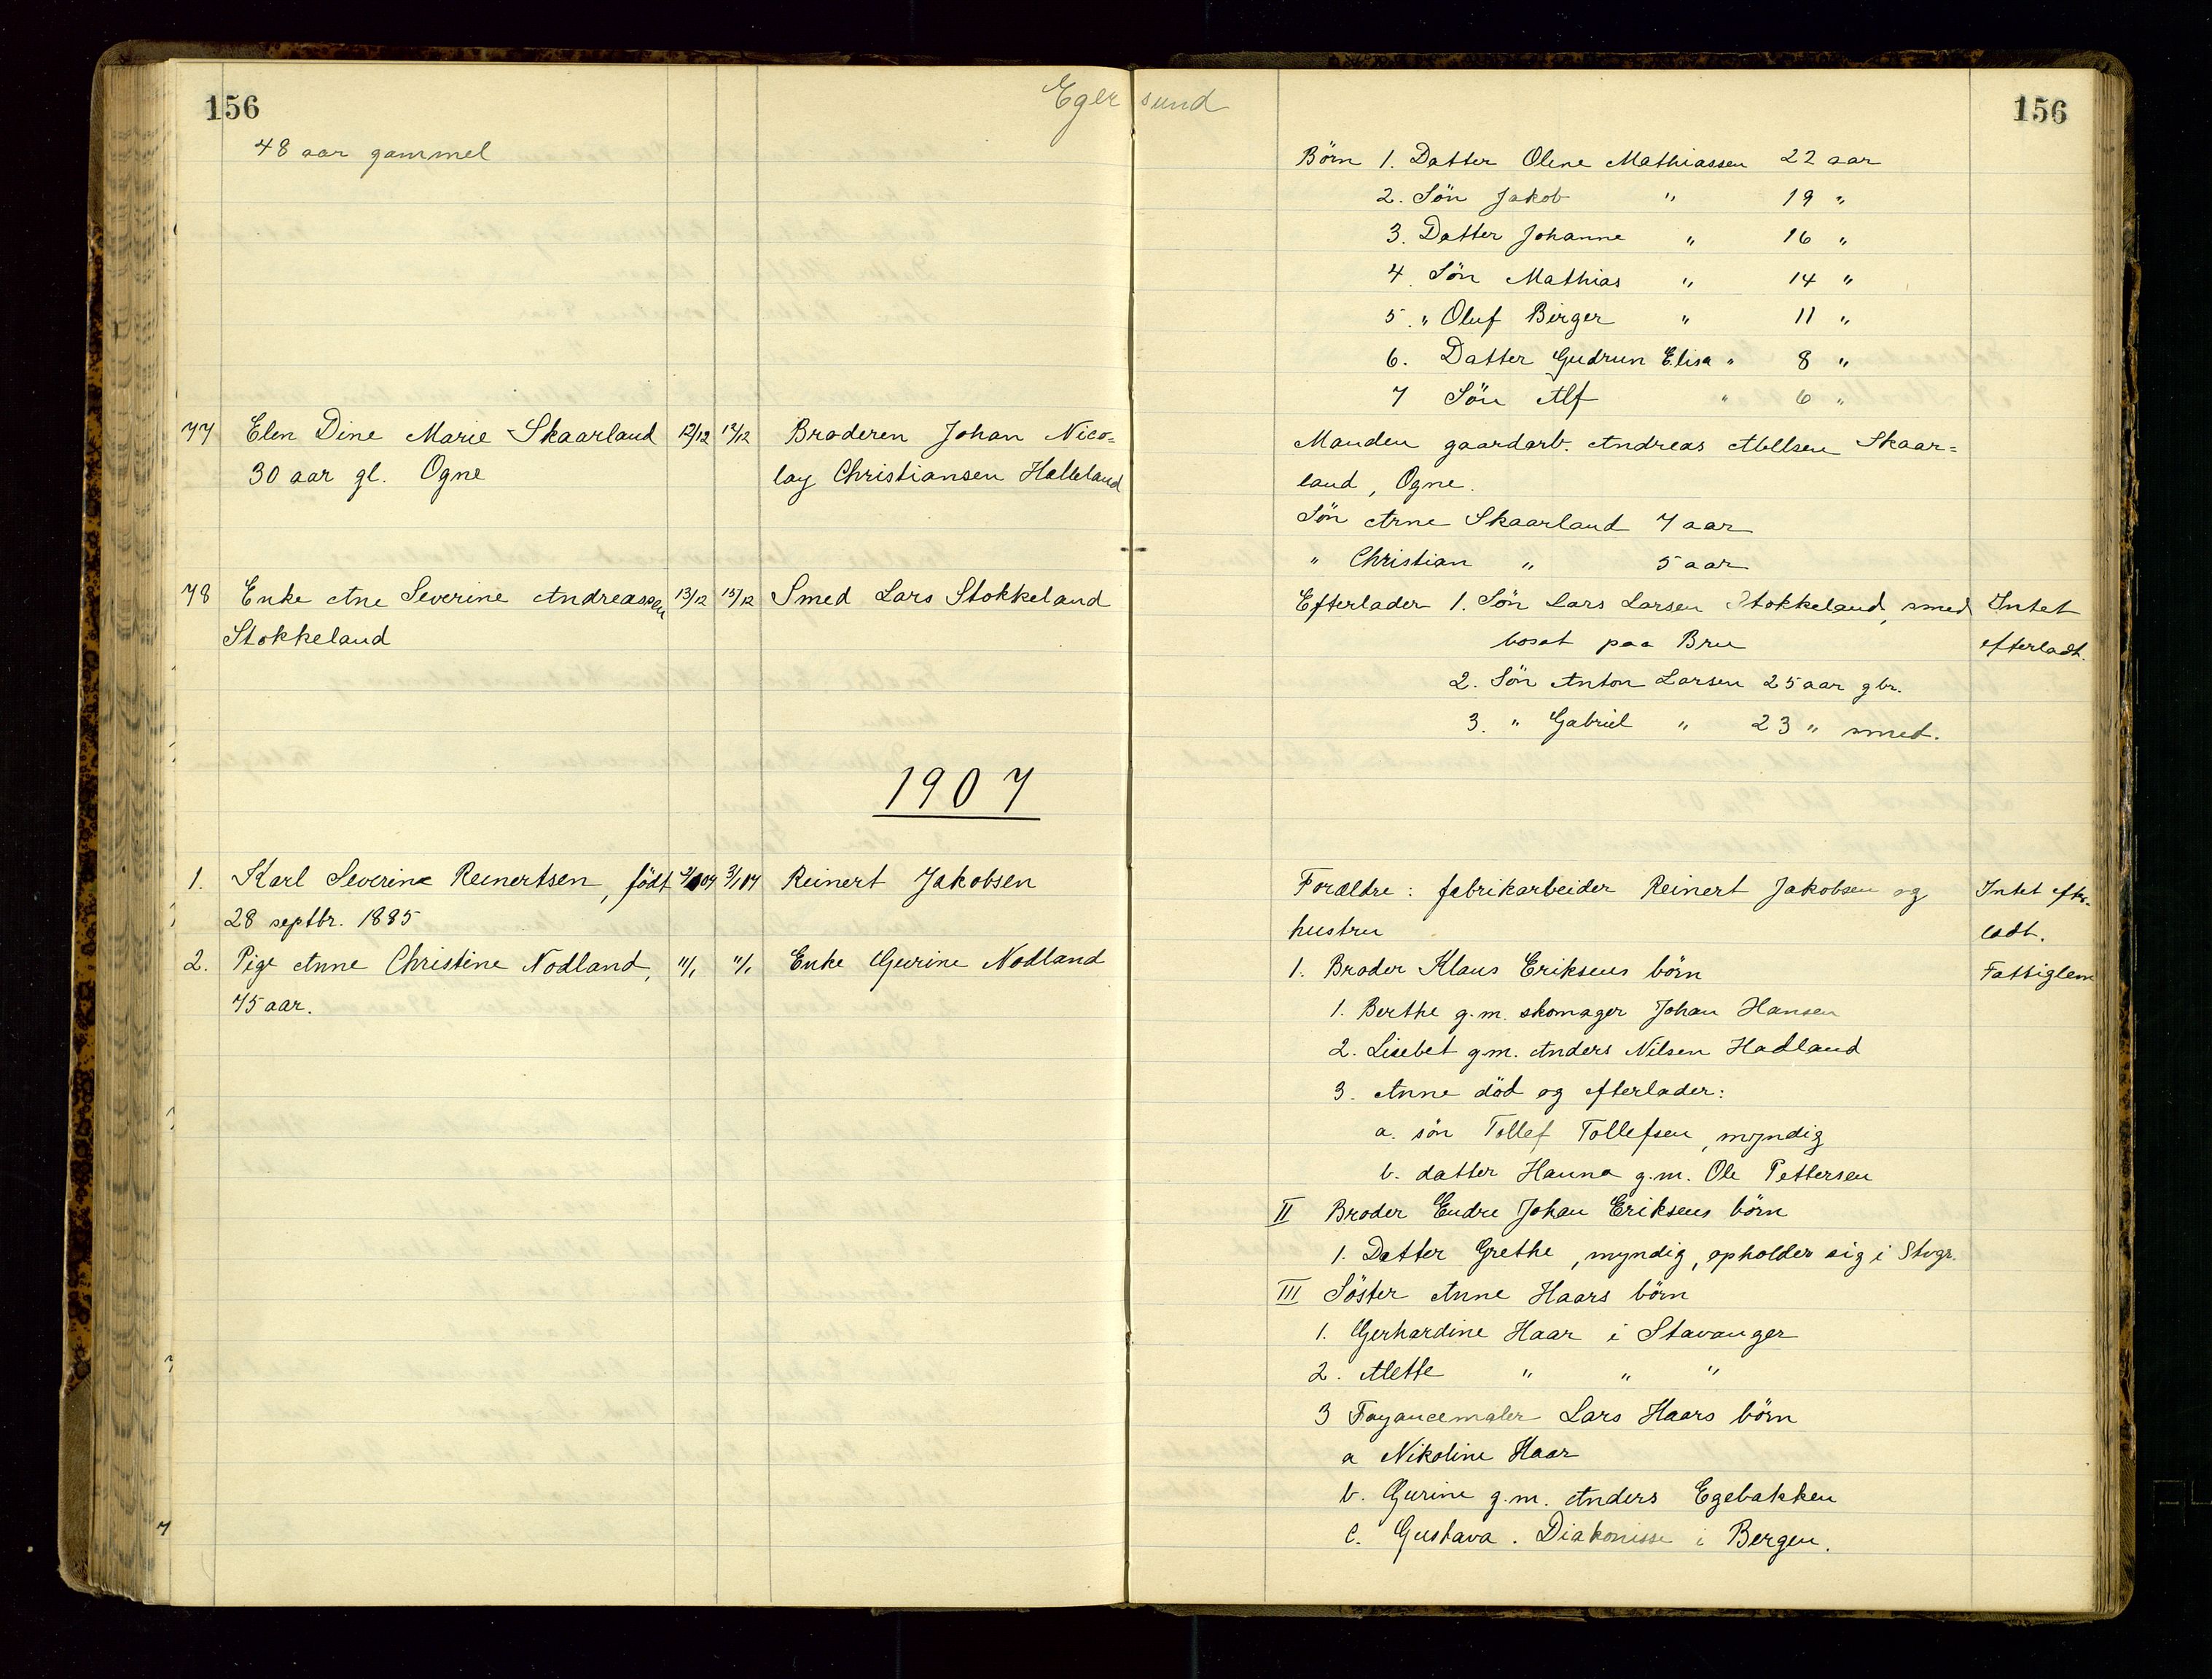 156
Egersund
156
48 aar gammel
Börn 1. Datter Olene Mathiassen 22 aar
2. Sön Jakob " 19 "
3. Datter Johanne " 16 "
4. Sön Mathias " 14 "
5. " Oluf Birger " 11 "
6. Datter Gudrun Elisa " 8 "
7 Sön Alf " 6 "
77 Elen Dine Marie Skaarland 12/12 12/12 Broderen Johan Nico= Manden gaardarb. Andreas Skaar=
30 aar gl. Ogne lay Christiansen Helleland land, Ogne.
Sön Arne Skaarland 7 aar
" Christian " 5 aar
78 Enke Ane Severine Andreassen 13/12 15/12 Smed Lars Stokkeland Efterlader 1. Sön Lars Larsen Stokkeland, smed Intet
Stokkeland bosat paa Bru efterladt.
2. Sön Anton Larsen 25 aar gbr.
3. " Gabriel " 23 " smed.
1907
1. Karl Severin Reinertsen, födt 3/1 07 Reinert Jakobsen Forældre: fabrikarbeider Reinert Jakobsen og Intet efter-
28 septbr. 1885 hustru ladt.
2. Pige Anne Christine Nodland, 11/1 11/1 Enke Gurine Nodland 1. Broder Klaus Eriksens börn Fattiglem
75 aar. 1. Berthe g.m. skomager Johan Hansen
2. Lisebet g.m. Anders Nilsen Hadland
3. Anne död og efterlader:
a. sön Tollef Tollefsen, myndig
b. datter Hanna g.m. Ole Pettersen
II Broder Endre Johan Eriksens börn
1. Datter Grethe, myndig, opholder sig i Stvgr.
III Söster Anne Haars börn
1. Gerhardine Haar i Stavanger
2. Mette " " "
3 Fayancemaler Lars Haars börn
a Nikoline Haar
b. Gurine g.m. Anders Egebakken
c. Gustava. Diakonisse i Bergen.